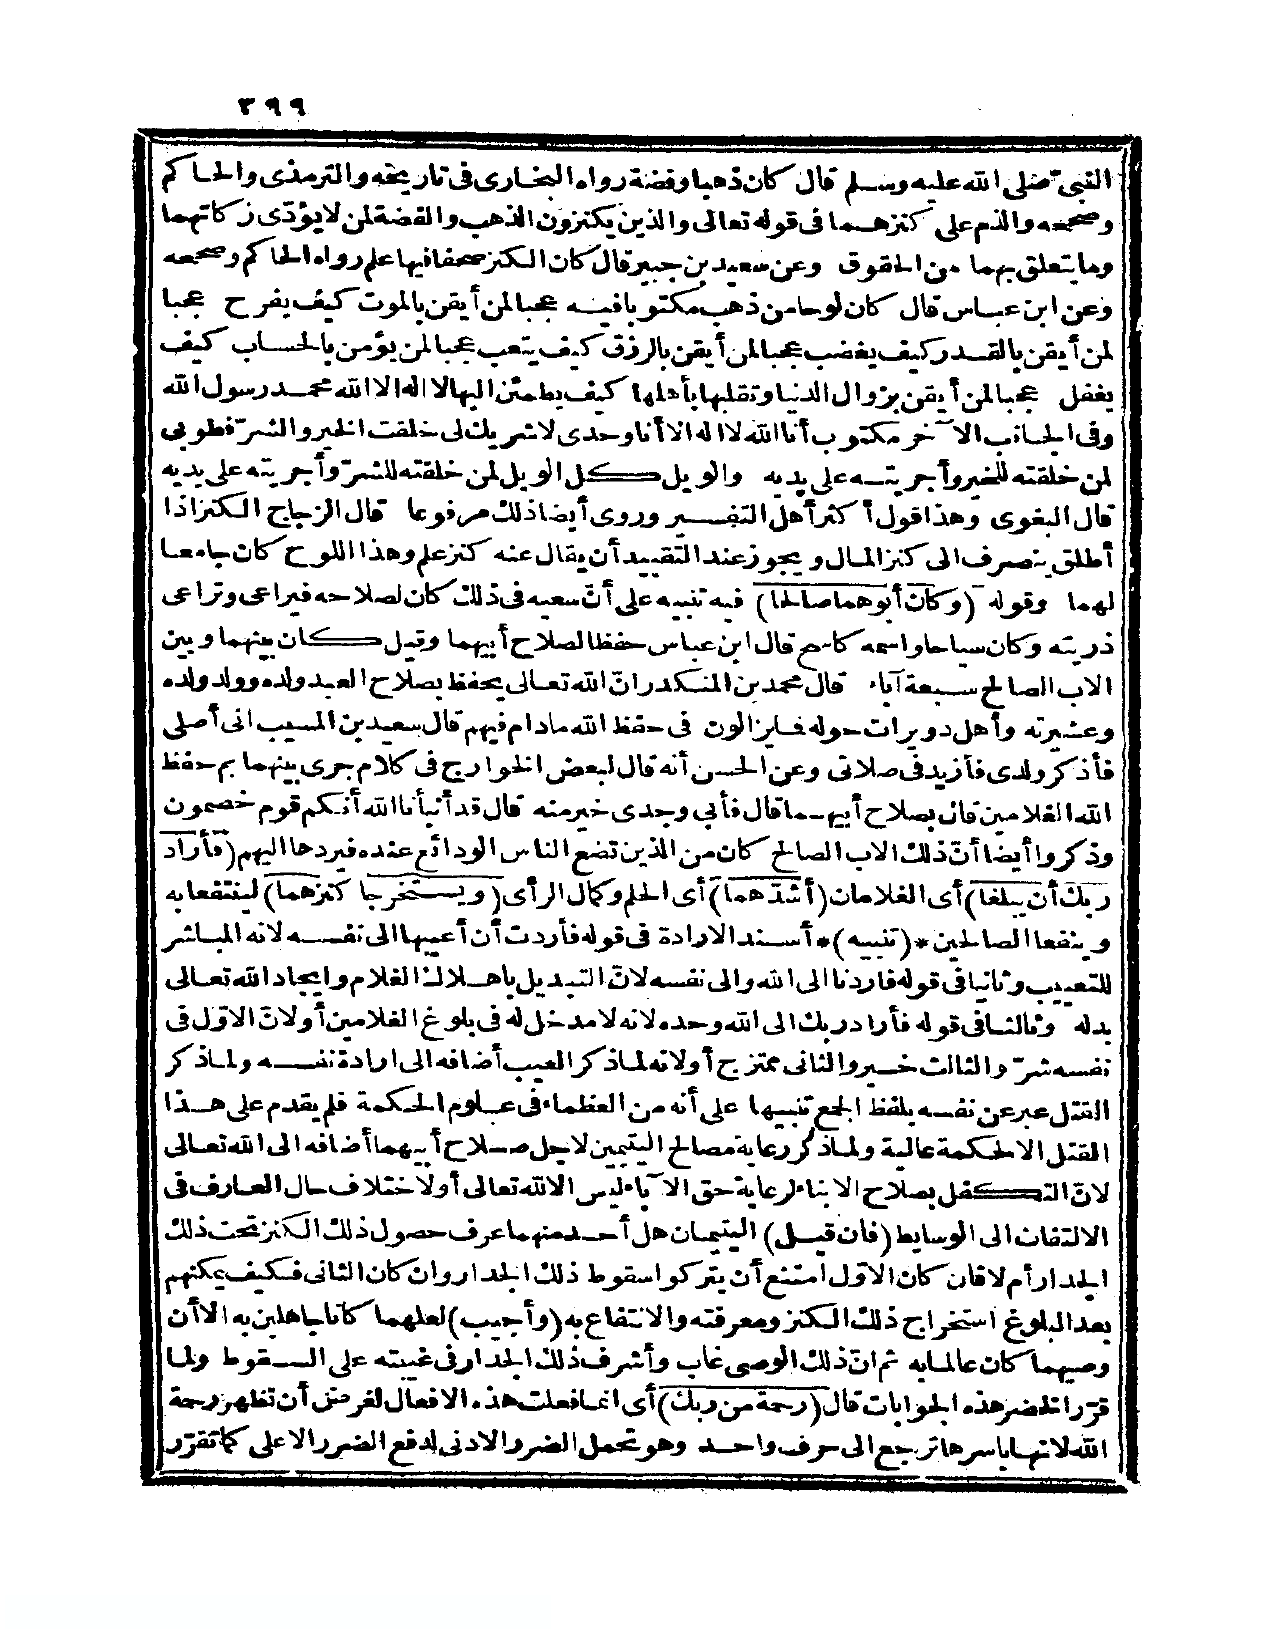 ٣٩٩
النبي صلى الله عليه وسلم قال كان ذهبا وفضة رواه البخارى فى تاريخه والترمذى والحاكم
وصححه والذم على كنزهما فى قوله تعالى والذين يكنزون الذهب والفضة لمن لا يؤدّى زكاتهما
وما يتعلق بهما من الحقوق وعن سعيد بن جبير قال كان الكنز صحفا فيها علم رواه الحاكم وصححه
وعن ابن عباس قال كان لوحا من ذهب مكتوبا فيه عجبا لمن أيقن بالموت كيف يفرح عجبا
لمن أيقن بالقدر كيف يغضب عجبا لمن أيقن بالرزق كيف يتعب عجبا لمن يؤمن بالحساب كيف
يغفل عجبا لمن أيقن بزوال الدنيا وتقلبها بأهلها كيف يطمئن اليها لا اله الا الله محمد رسول الله
وفى الجانب الآخر مكتوب أنا الله لا اله الا أنا وحدى لا شريك لى خلقت الخير والشرّ فطوبى
لمن خلقته للخير وأجريته على يديه والويل كل الويل لمن خلقته للشرّ وأجريته على يديه
قال البغوى وهذا قول أكثر أهل التفسير وروى أيضا ذلك مرفوعا قال الزجاج الكنز اذا
أطلق ينصرف الى كنز المال ويجوز عند التقييد أن يقال عنه كنز علم وهذا اللوح كان جامعا
لهما وقوله (وكان أبوهما صالحا) فيه تنبيه على أنّ سعيه فى ذلك كان لصلاحه فيراعى وتراعى
ذريته وكان سياحا واسمه كاسح قال ابن عباس حفظا لصلاح أبيهما وقيل كان بينهما وبين
الاب الصالح سبعة آباء قال محمد بن المنكدر انّ الله تعالى يحفظ بصلاح العبد ولده وولد ولده
وعشيرته وأهل دويرات حوله فما يزالون فى حفظ الله مادام فيهم قال سعيد بن المسيب انى أصلى
فأذكر ولدى فأزيد فى صلاتى وعن الحسن أنه قال لبعض الخوارج فى كلام جرى بينهما بم حفظ
الله الغلامين قال بصلاح أبيهما قال فأبى وجدى خير منه قال قد أنبأنا الله أنكم قوم خصمون
وذكروا أيضا أنّ ذلك الاب الصالح كان من الذين تضع الناس الودائع عنده فيردها اليهم (فأراد
ربك أن يبلغا) أى الغلامان (أشدّهما) أى الحلم وكمال الرأى (ويستخرجا كنزهما) لينتفعا به
وينفعا الصالحين *(تنبيه)* أسند الارادة فى قوله فأردت أن أعيبها الى نفسه لانه المباشر
للتعييب وثانيا فى قوله فأردنا الى الله والى نفسه لانّ التبديل باهلاك الغلام وايجاد الله تعالى
بدله وثالثا فى قوله فأراد ربك الى الله وحده لانه لا مدخل له فى بلوغ الغلامين أو لانّ الاوّل فى
نفسه شرّ والثالث خير والثانى ممتزج أو لانه لما ذكر العيب أضافه الى ارادة نفسه ولما ذكر
القتل عبر عن نفسه بلفظ الجمع تنبيها على أنه من العظماء فى علوم الحكمة فلم يقدم على هذا
القتل الا لحكمة عالية ولما ذكر رعاية مصالح اليتيمين لاجل صلاح أبيهما أضافه الى الله تعالى
لانّ التكفل بصلاح الابناء لرعاية حق الآباء ليس الا لله تعالى أو لاختلاف حال العارف فى
الالتفات الى الوسايط (فان قيل) اليتيمان هل أحد منهما عرف حصول ذلك الكنز تحت ذلك
الجدار أم لا فان كان الاوّل امتنع أن يتركوا سقوط ذلك الجدار وان كان الثانى فكيف يمكنهم
بعد البلوغ استخراج ذلك الكنز ومعرفته والانتفاع به (وأجيب) لعلهما كانا جاهلين به الا أن
وصيهما كان عالما به ثم انّ ذلك الوصى غاب وأشرف ذلك الجدار فى غيبته على السقوط ولما
قرّر الخضر هذه الجوابات قال (رحمة من ربك) أى انما فعلت هذه الافعال لغرض أن تظهر رحمة
الله لانها باسرها ترجع الى حرف واحد وهو تحمل الضرر الادنى لدفع الضرر الاعلى كما تقرّر